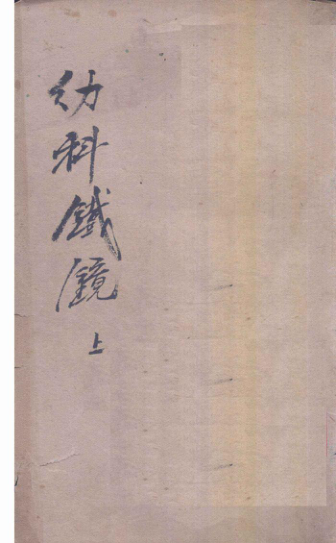 幼科鐵鏡
上